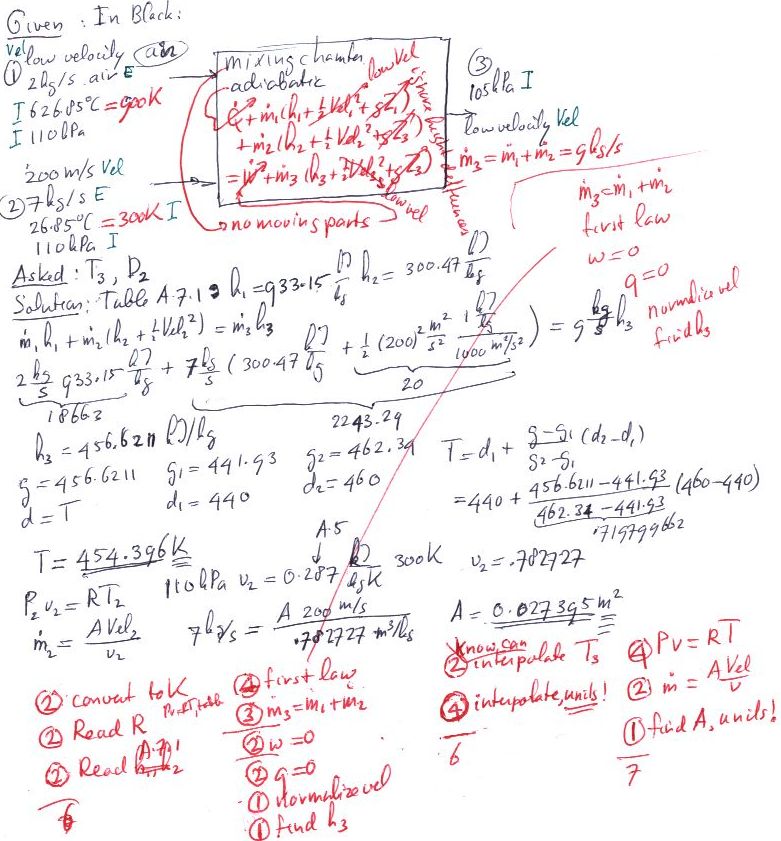 Given : In Black:
Vel low velocity air
① 2kg/s air E
I 626.85°C = 900K
I 110kPa
200 m/s Vel
② 7kg/s E
26.85°C = 300K I
110kPa I
mixing chamber
adiabatic
low vel
Q̇ + ṁ₁(h₁ + ½Vel₁² + gZ₁)
+ ṁ₂(h₂ + ½Vel₂² + gZ₂)
= Ẇ + ṁ₃(h₃ + ½Vel₃² + gZ₃)
low vel
no moving parts
height differences
③
105kPa I
low velocity Vel
ṁ₃ = ṁ₁ + ṁ₂ = 9kg/s
ṁ₃ = ṁ₁ + ṁ₂
first law
w = 0
q = 0
normalize vel
find h₃
Asked : T₃, D₂
Solution: Table A.7.1 : h₁ = 933.15 kJ/kg h₂ = 300.47 kJ/kg
ṁ₁h₁ + ṁ₂(h₂ + ½Vel₂²) = ṁ₃h₃
2 kg/s 933.15 kJ/kg + 7 kg/s (300.47 kJ/kg + ½ (200)² m²/s² 1 kJ/kg / 1000 m²/s²) = 9 kg/s h₃
20
1866.3
2243.29
h₃ = 456.6211 kJ/kg
g = 456.6211 g₁ = 441.93 g₂ = 462.34
d = T d₁ = 440 d₂ = 460
T = d₁ + g-g₁/g₂-g₁ (d₂-d₁)
= 440 + 456.6211-441.93/462.34-441.93 (460-440)
.719799662
T = 454.396K
A.5
110kPa v₂ = 0.287 kJ/kgK 300K v₂ = .782727
P₂v₂ = RT₂
ṁ₂ = AVel₂/v₂ 7kg/s = A 200 m/s / .782727 m³/kg A = 0.027395m²
② convert to K
② Read R Pv=RT, table
② Read A.7.1 h₁, h₂
6
④ first law
③ ṁ₃ = ṁ₁ + ṁ₂
② w = 0
② q = 0
① normalize vel
① find h₃
know, can
② interpolate T₃
④ interpolate, units!
6
④ Pv = RT
② ṁ = AVel/v
① find A, units!
7